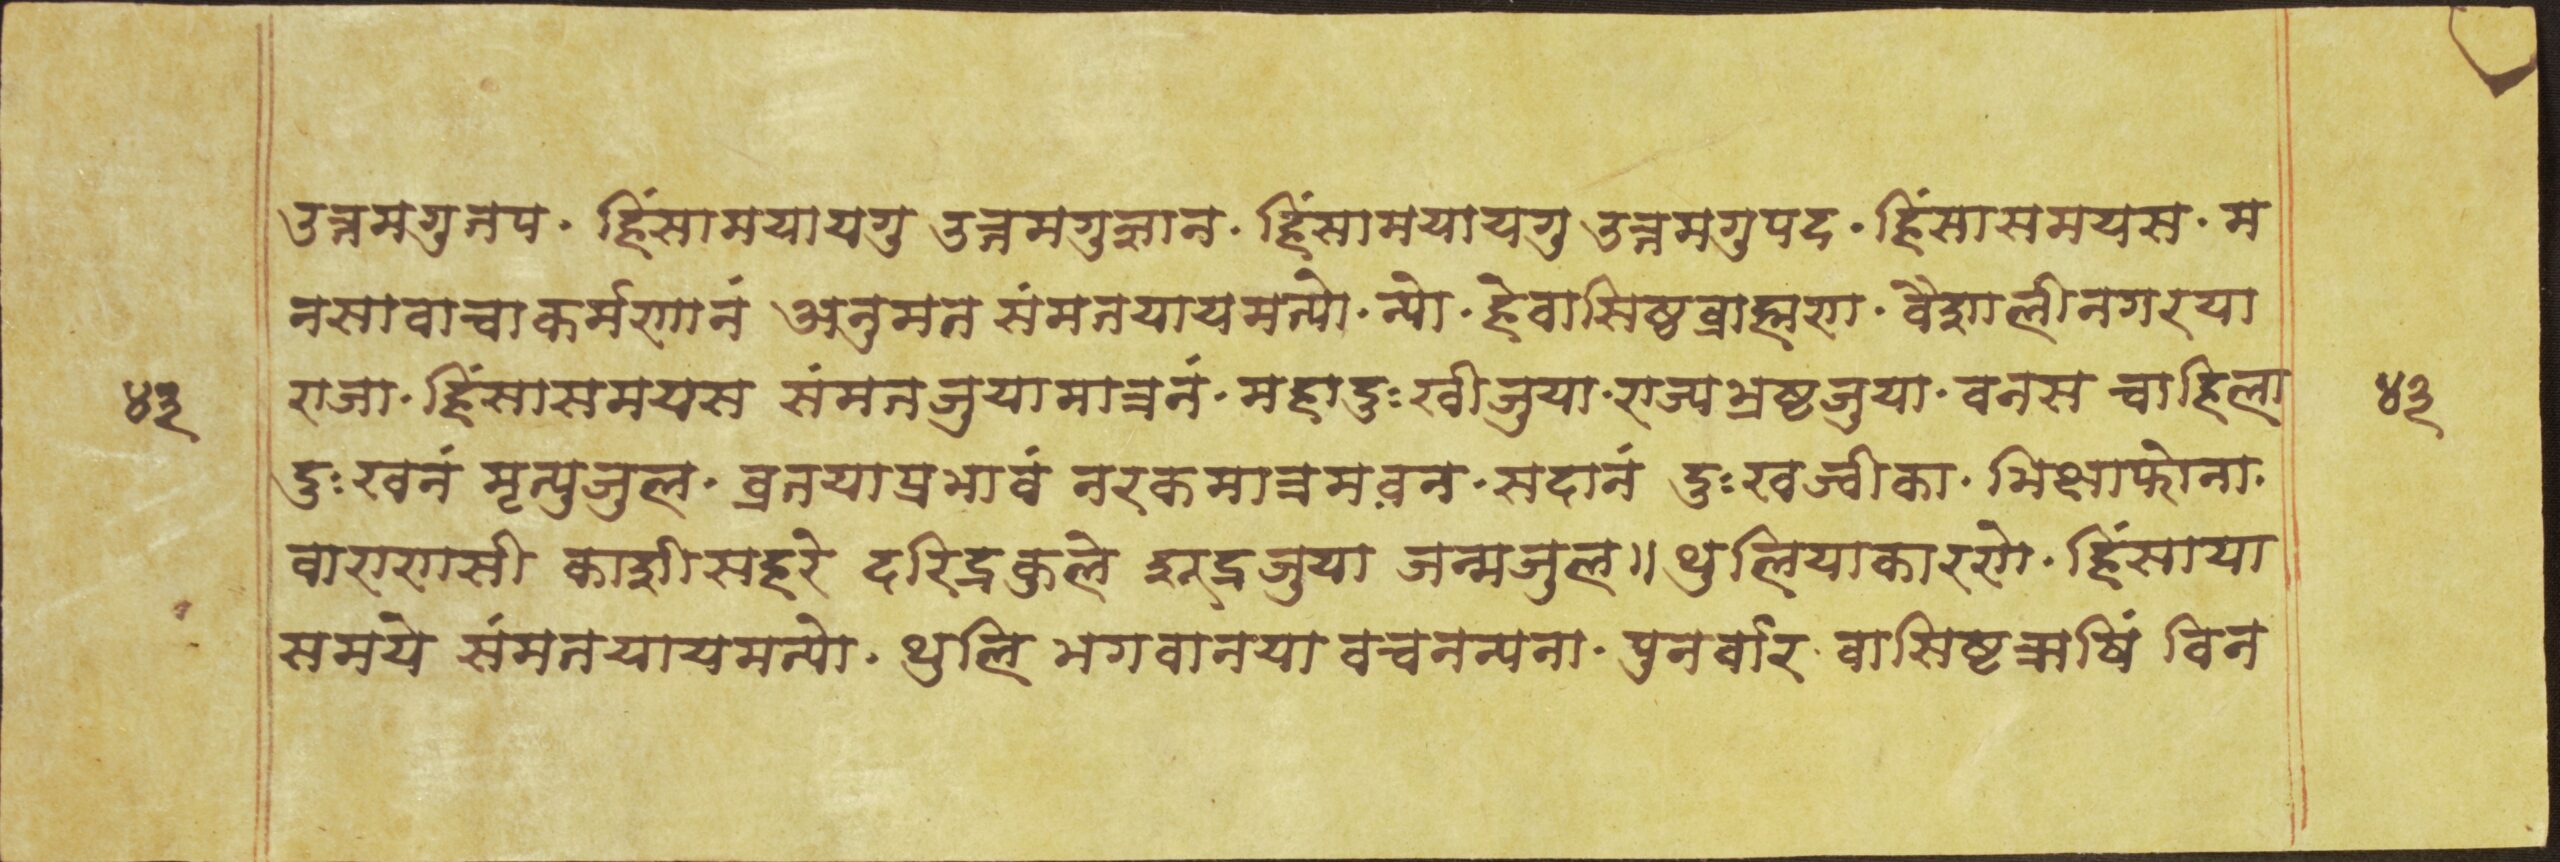 उत्तमगु तप. हिंसामयायगु उत्तमगु ज्ञान. हिंसामयायगु उत्तमगु पद. हिंसासमयस. म
नसावाचाकर्मणानं अनुमत संमतयायमत्यो. त्यो. हेवासिष्ठब्राह्मण. वैशालीनगरया
४३ राजा. हिंसासमयस संमतजुयामात्रनं. महादुःखीजुया. राज्यभ्रष्टजुया. वनस चाहिला ४३
दुःखनं मृत्युजुल. व्रतयाप्रभावं नरकमात्रमवन. सदानं दुःखज्वीका. भिक्षाफोना.
वाराणसी काशीसहरे दरिद्रकुले क्षुद्रजुया जन्मजुल॥ थुलियाकारणे. हिंसाया
समये संमतयायमत्यो. थुलि भगवानया वचनन्यना. पुनर्वार वासिष्टऋषिं विन